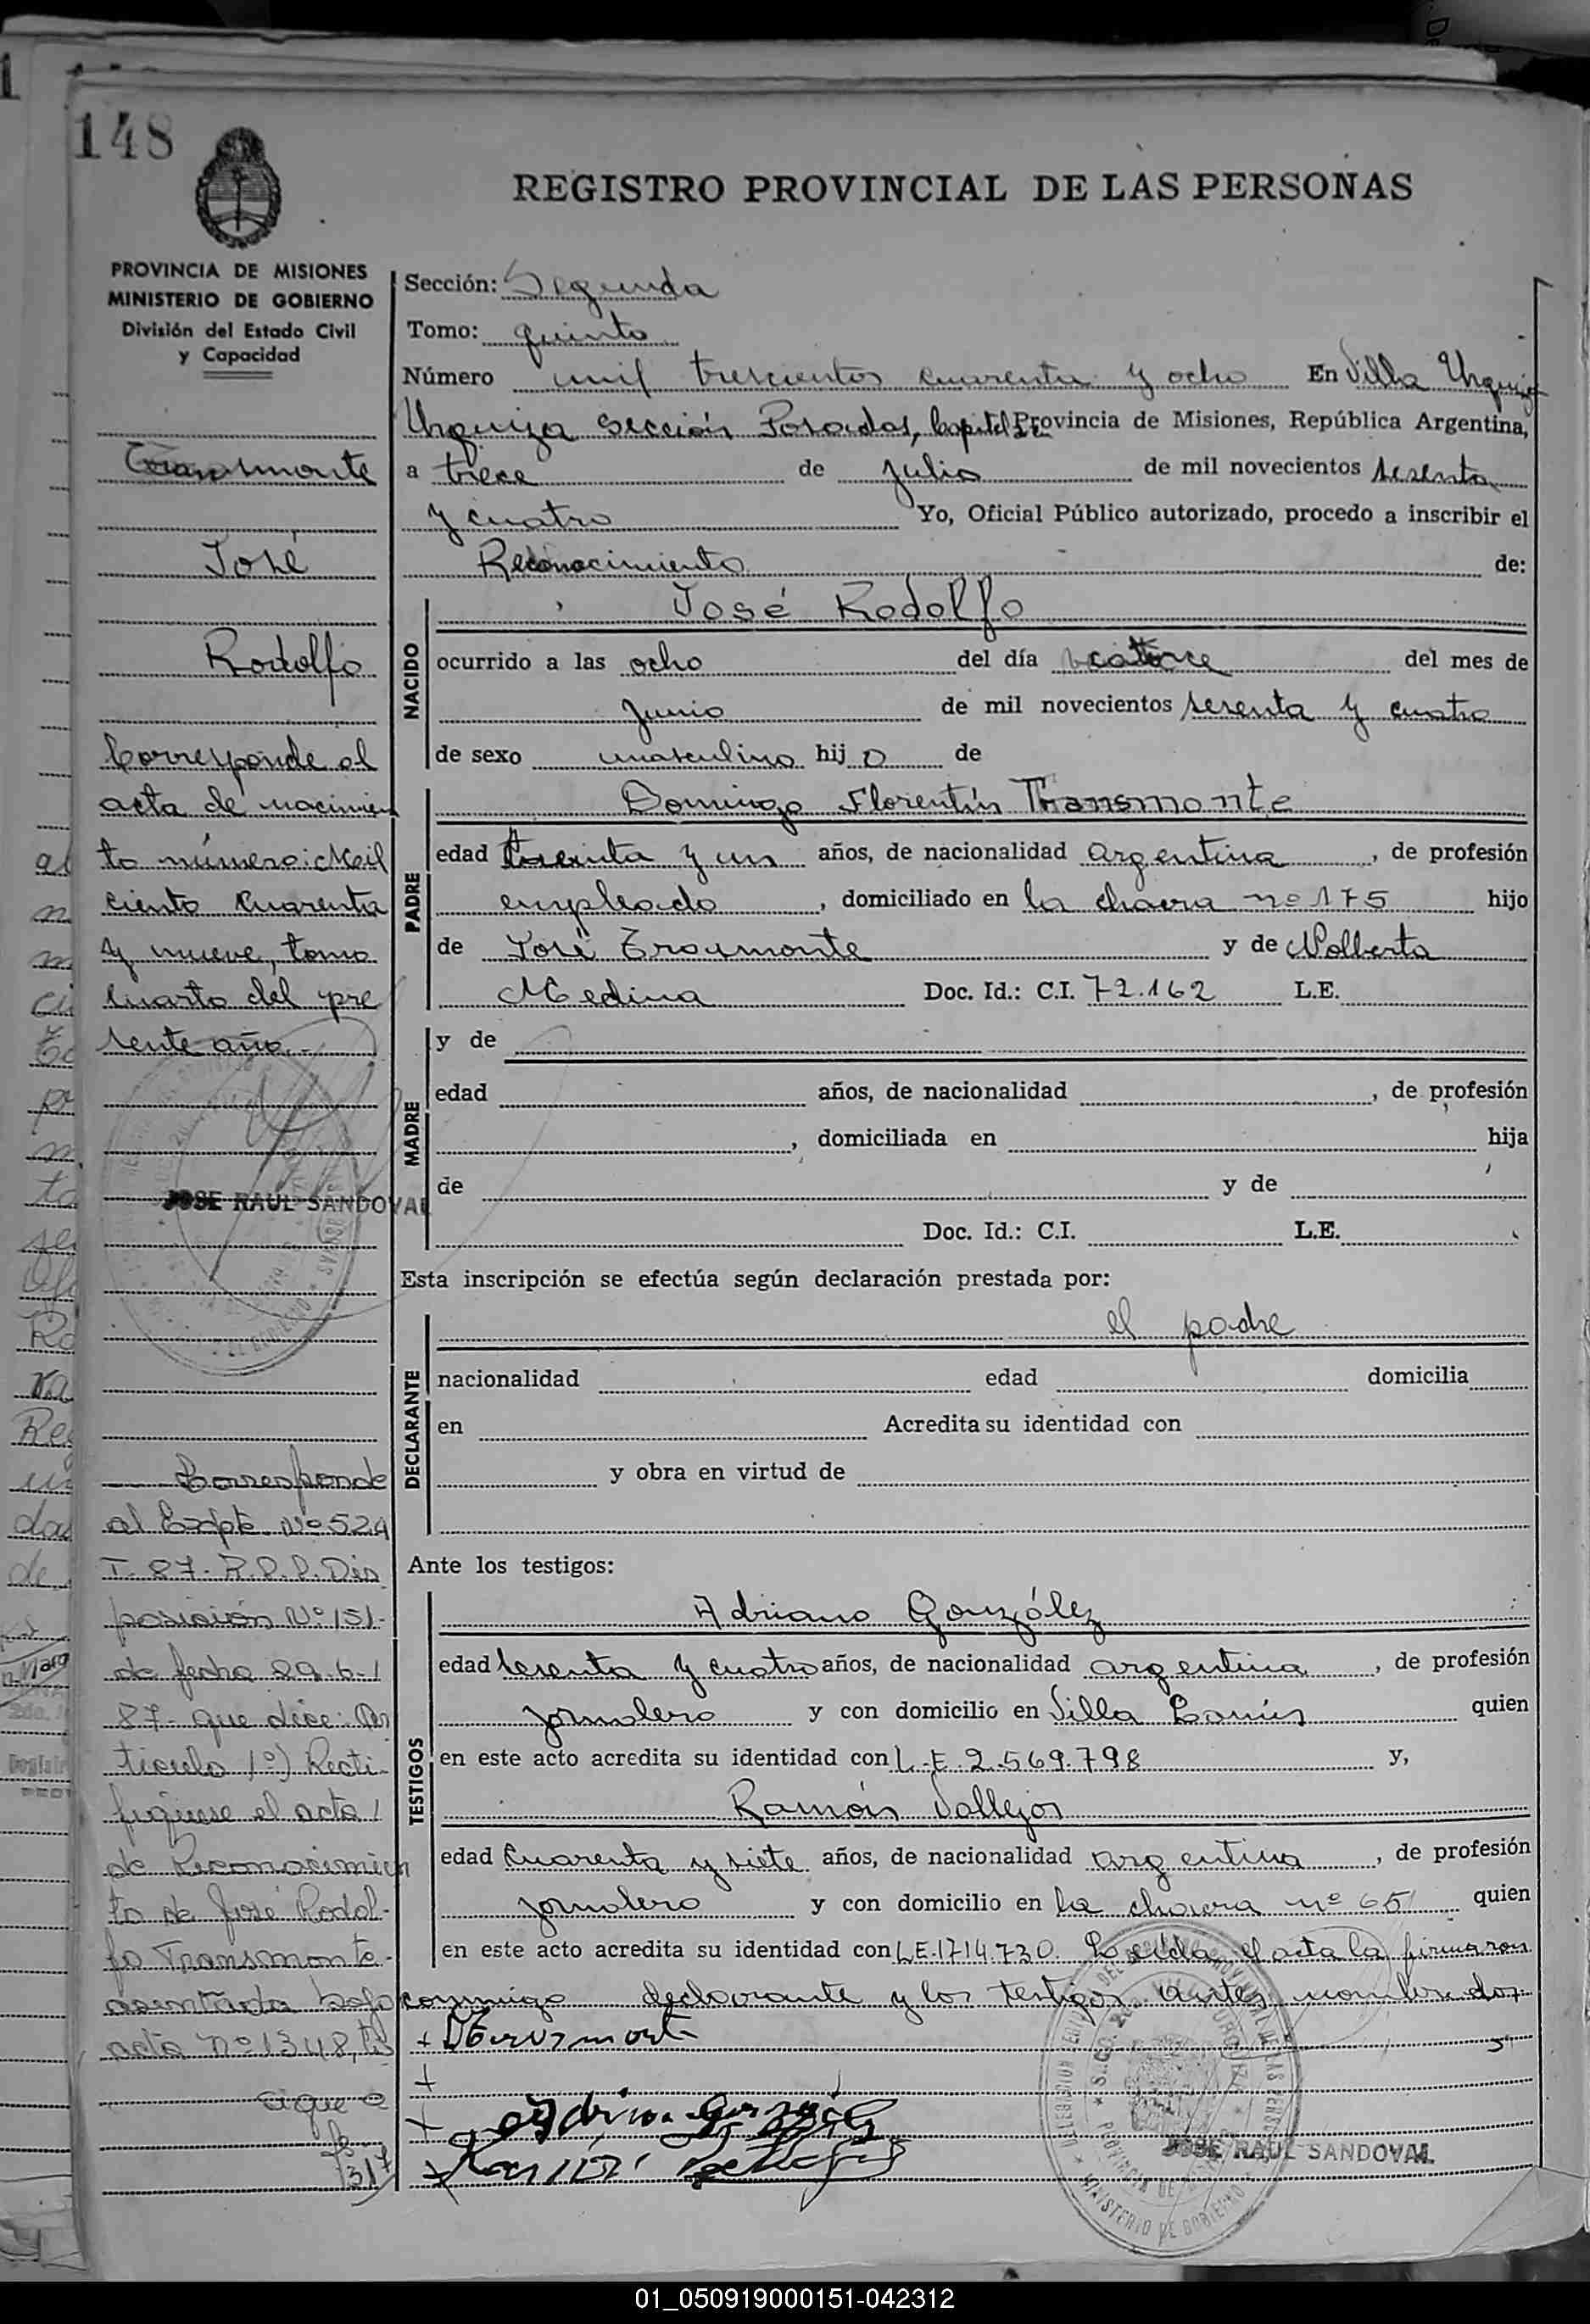 148
REGISTRO PROVINCIAL DE LAS PERSONAS
PROVINCIA DE MISIONES
MINISTERIO DE GOBIERNO
División del Estado Civil
y Capacidad
Transmonte
José
Rodolfo
Corresponde al
acta de nacimien
to número: Mil
ciento cuarenta
y nueve, tomo
cuarto del pre
sente año.-
JOSE RAUL SANDOVAL
Corresponde
al Expte Nº 524
T. 87- R.P.P. Dis
posición Nº 151-
de fecha 29-6-/
87- que dice: Ar
tículo 1º) Recti-
fiquese el acta/
de Reconocimien
to de José Rodol-
fo Transmonte-
asentada bajo
acta nº 1348, tº
sigue
fº
317
Sección: Segunda
Tomo: quinto
Número mil trescientos cuarenta y ocho En Villa Urquiza
Urquiza sección Posadas, Capital de Provincia de Misiones, República Argentina,
a trece de julio de mil novecientos sesenta
y cuatro Yo, Oficial Público autorizado, procedo a inscribir el
Reconocimiento de:
NACIDO
José Rodolfo
ocurrido a las ocho del día catorce del mes de
junio de mil novecientos sesenta y cuatro
de sexo masculino hijo de
PADRE
Domingo Florentín Transmonte
edad treinta y un años, de nacionalidad argentina, de profesión
empleado, domiciliado en la chacra nº 175 hijo
de José Trasmonte y de Nolberta
Medina Doc. Id.: C.I. 72.162 L.E.
MADRE
y de
edad años, de nacionalidad , de profesión
, domiciliada en hija
de y de
Doc. Id.: C.I. L.E.
Esta inscripción se efectúa según declaración prestada por:
DECLARANTE
el padre
nacionalidad edad domicilia
en Acredita su identidad con
y obra en virtud de
Ante los testigos:
TESTIGOS
Adriano González
edad sesenta y cuatro años, de nacionalidad argentina, de profesión
jornalero y con domicilio en Villa Lanús quien
en este acto acredita su identidad con L.E. 2.569.798 y,
Ramón Vallejos
edad cuarenta y siete años, de nacionalidad argentina, de profesión
jornalero y con domicilio en la chacra nº 65 quien
en este acto acredita su identidad con L.E. 1714.730. Leída el acta la firmaron
conmigo declarante y los testigos antes nombrados.-
JOSE RAUL SANDOVAL
01_050919000151-042312